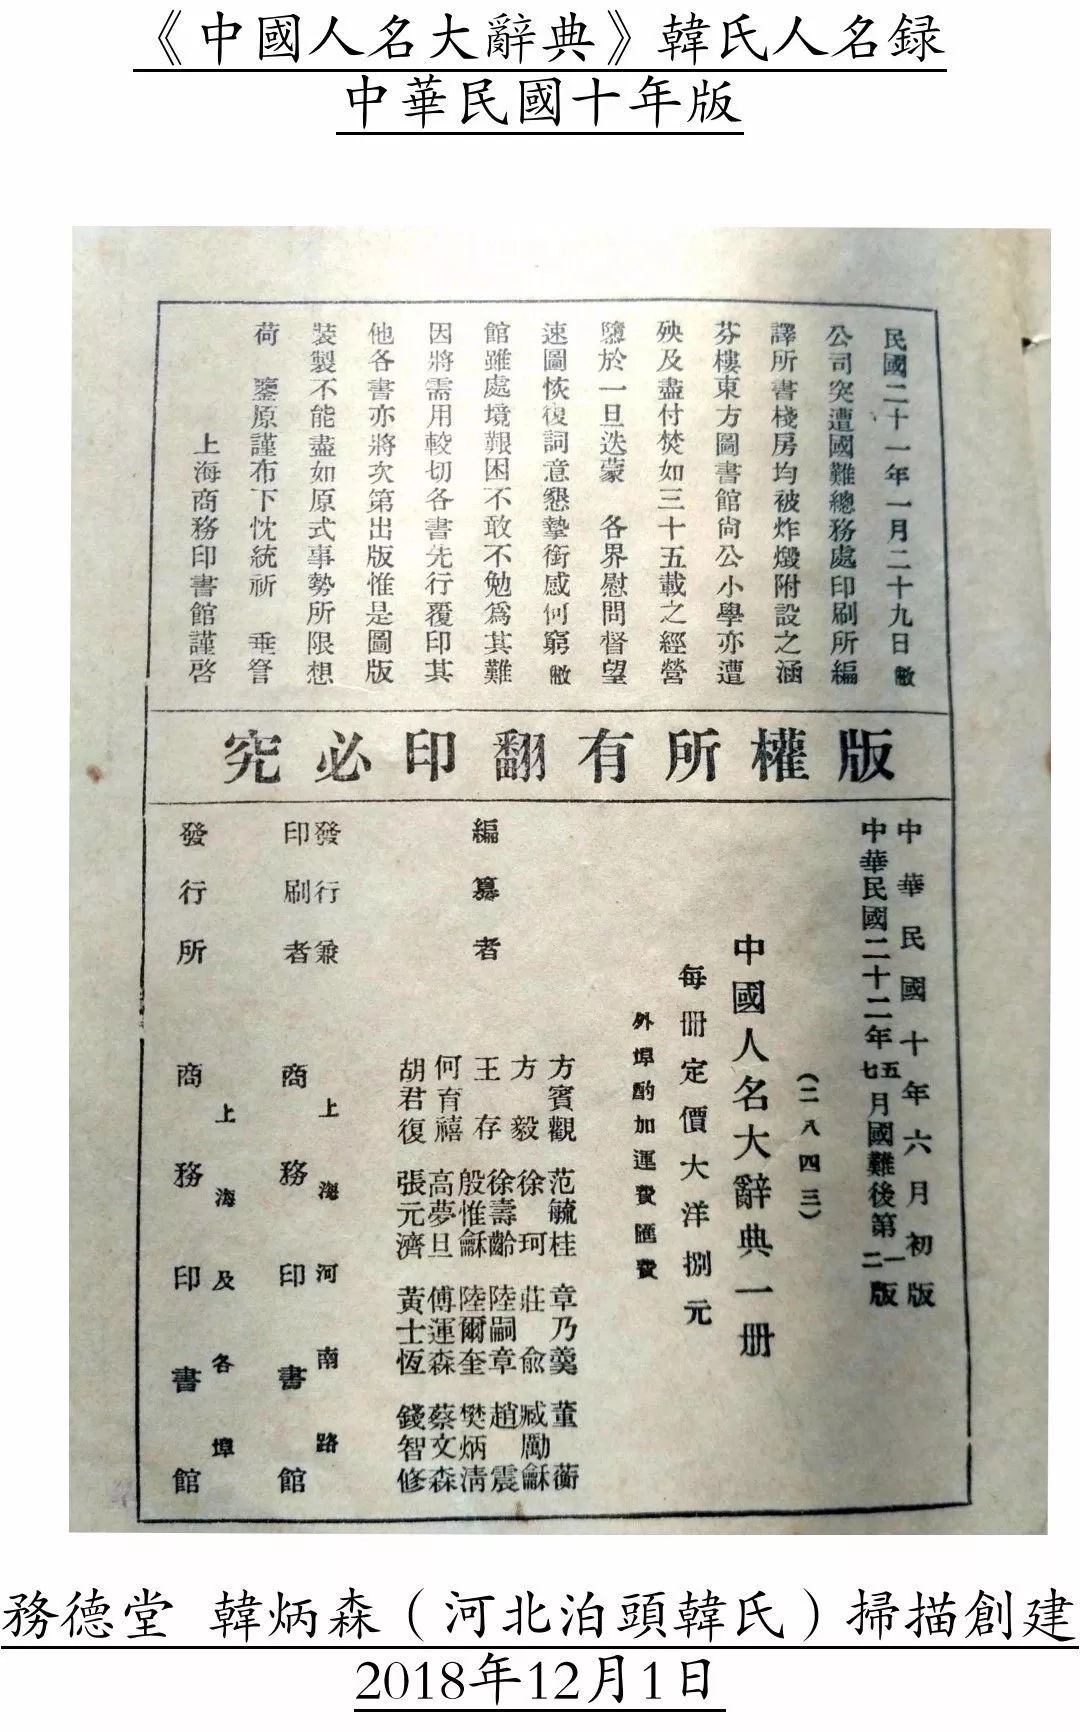 《中國人名大辭典》韓氏人名録
中華民國十年版
民國二十一年一月二十九日敝
公司突遭國難總務處印刷所編
譯所書棧房均被炸燬附設之涵
芬樓東方圖書館尙公小學亦遭
殃及盡付焚如三十五載之經營
隳於一旦迭蒙 各界慰問督望
速圖恢復詞意懇摯銜感何窮敝
館雖處境艱困不敢不勉爲其難
因將需用較切各書先行覆印其
他各書亦將次第出版惟是圖版
裝製不能盡如原式事勢所限想
荷 鑒原謹布下忱統祈 垂詧
上海商務印書館謹啓
版權所有翻印必究
中華民國十年六月初版
中華民國二十二年五七月國難後第一二版
(二八四三)
中國人名大辭典一册
每册定價大洋捌元
外埠酌加運費匯費
編纂者
方賓觀 范毓桂 章乃羹 董蘅
方毅 徐珂 莊俞 臧勵龢
王存 徐壽齡 陸嗣章 趙震
殷惟龢 陸爾奎 樊炳清
何育禧 高夢旦 傅運森 蔡文森
胡君復 張元濟 黃士恆 錢智修
發行兼
印刷者
上海河南路
商務印書館
發行所
上海及各埠
商務印書館
務德堂 韓炳森（河北泊頭韓氏）掃描創建
2018年12月1日